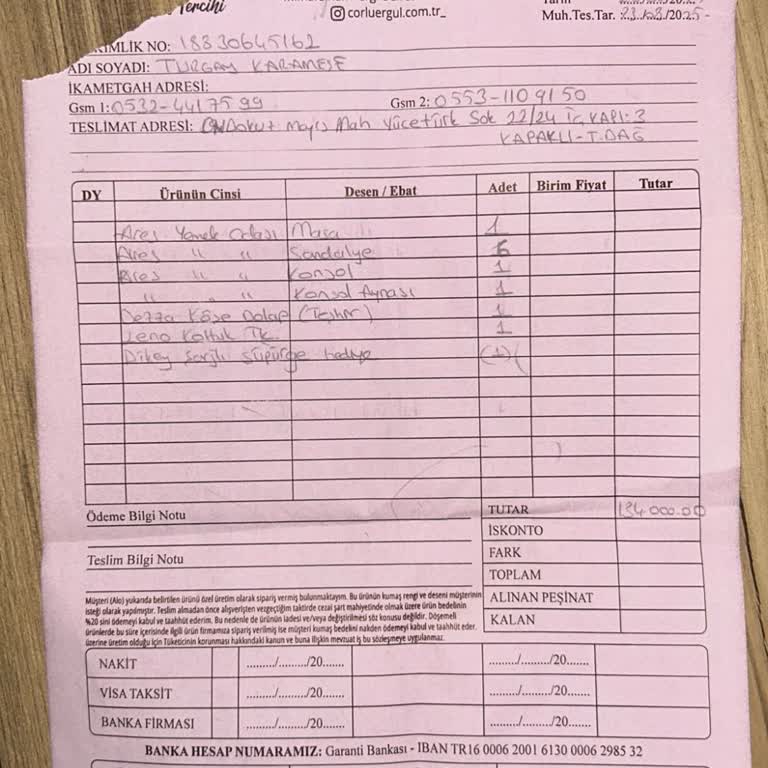 Tercihi
corluergul.com.tr_
Muh.Tes.Tar. 23/03/2025-
KİMLİK NO: 18830645162
ADI SOYADI: TURGAY KARAMEŞE
İKAMETGAH ADRESİ:
Gsm 1: 0532-4417599 Gsm 2: 0553-1109150
TESLİMAT ADRESİ: Mayıs Mah Yücetürk Sok 22/24 İç KAPI:3
KAPAKLI-T.DAĞ
DY Ürünün Cinsi Desen / Ebat Adet Birim Fiyat Tutar
Ares Yemek Odası Masa 1
Ares " " Sandalye 6
Ares " " Konsol 1
" " Konsol Aynası 1
Dezza Köşe Dolap (Teşhir) 1
Leno Koltuk Tk. 1
Dikey Şarjlı Süpürge hediye (1)
Ödeme Bilgi Notu
Teslim Bilgi Notu
TUTAR 134000.00
İSKONTO
FARK
TOPLAM
ALINAN PEŞİNAT
KALAN
Müşteri (Alıcı) yukarıda belirtilen ürünü özel üretim olarak sipariş vermiş bulunmaktayım. Bu ürünün kumaş rengi ve deseni müşterinin
isteği olarak yapılmıştır. Teslim almadan önce alışverişten vezgeçtiğim taktirde cezai şart mahiyetinde olmak üzere ürün bedelinin
%20 sini ödemeyi kabul ve taahhüt ederim. Bu nedenle de ürünün iadesi ve/veya değiştirilmesi söz konusu değildir. Döşemeli
ürünlerde bu süre içerisinde ilgili ürün firmamıza sipariş verilmiş ise müşteri kumaş bedelini nakden ödemeyi kabul ve taahhüt eder.
üzerine üretim olduğu için Tüketicinin korunması hakkındaki kanun ve buna ilişkin mevzuat iş bu sözleşmeye uygulanmaz.
NAKİT ........./........./20....... ........./........./20.......
VİSA TAKSİT ........./........./20....... ........./........./20.......
BANKA FİRMASI ........./........./20....... ........./........./20.......
BANKA HESAP NUMARAMIZ: Garanti Bankası - IBAN TR16 0006 2001 6130 0006 2985 32